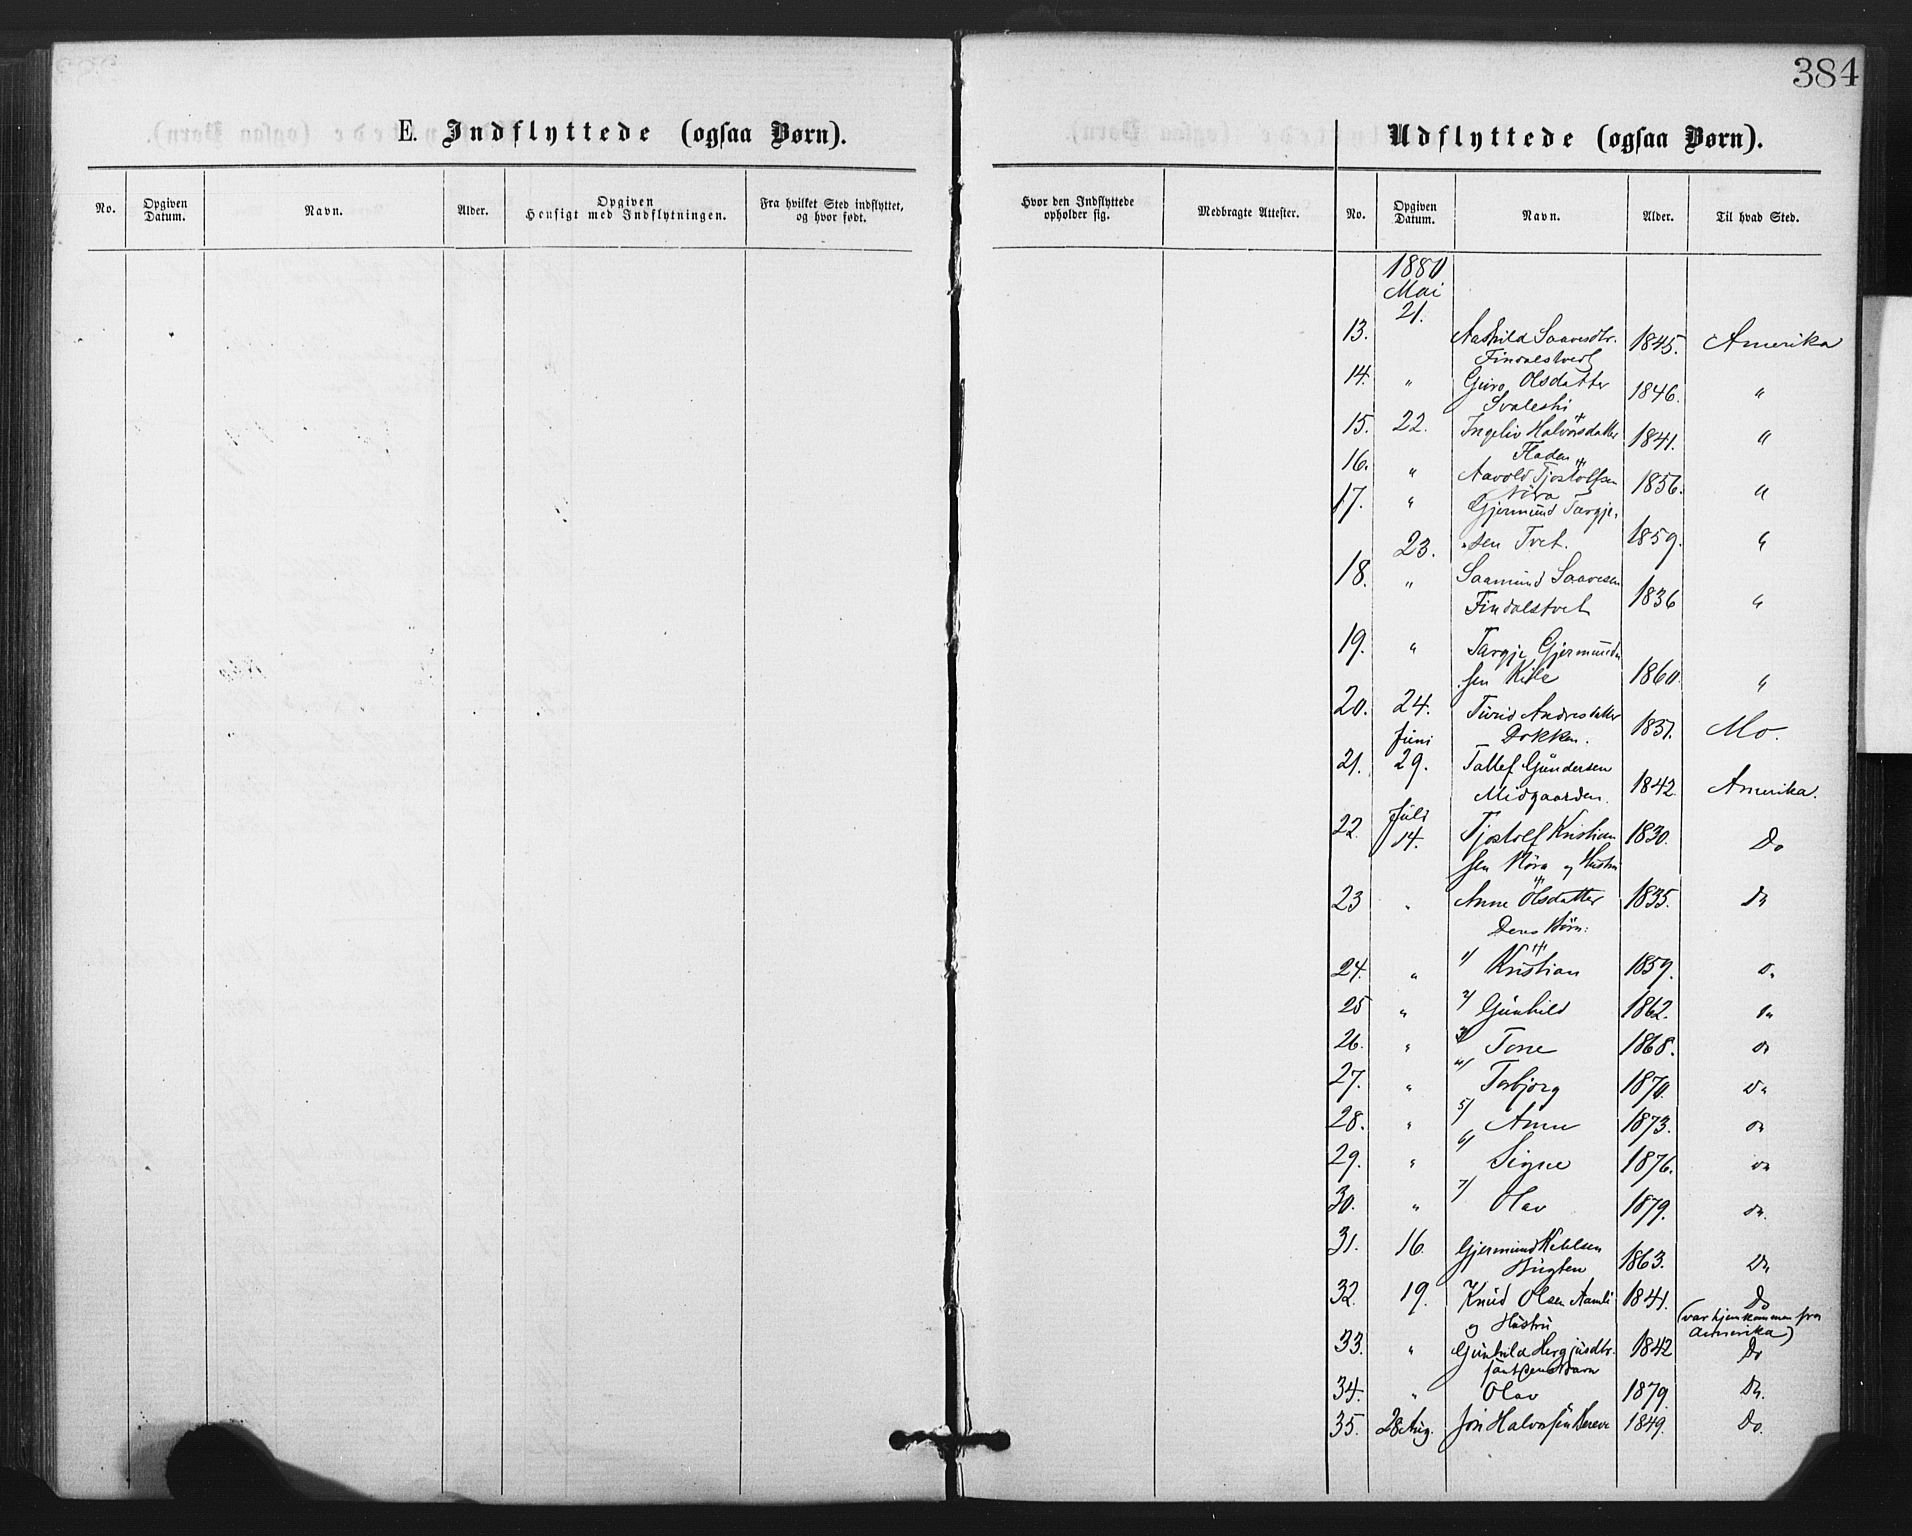 384
E. Indflyttede (ogsaa Børn).
Udflyttede (ogsaa Børn).
No. Opgiven Datum. Navn. Alder. Opgiven Hensigt med Indflytningen. Fra hvilket Sted indflyttet, og hvor født. Hvor den Indflyttede opholder sig. Medbragte Attester. No. Opgiven Datum. Navn. Alder. Til hvad Sted.
1880
Mai
21.
13. Aashild Saavesdtr. 1845. Amerika
Findalstvedt
14. " Guro Olsdatter 1846. "
Svalesti
15. 22. Ingeliv Halvorsdatter 1841. "
Fladen
16. " Aavold Tjostolfsen 1856. "
17. " Gjermund Targje-
23. -sen Tvet. 1859. "
18. " Saamund Saavesen
Findalstvet 1836 "
19. " Targje Gjermunds
sen Kile 1860. "
20. 24. Turid Andresdatter 1837. Mo.
Dokken.
Juni
21. 29. Tallef Gundersen
Midgaarden. 1842. Amerika.
Juli
22. 14. Tjostolf Kristian 1830. Do
sen og Hustru
23 " Anne Olsdatter 1835. Do
Deres Børn:
24. " 1/ Kristian 1859. do
25 " 2/ Gunhild 1862. do
26. " 3/ Tone 1868. do
27. " 4/ Torbjorg 1870. do
28. " 5/ Anne 1873. do
29. " 6/ Signe 1876. do
30. " 7/ Olav 1879. do.
31. 16. Gjermund 1863. Do
32. 19. Knud Olsen Aamli 1841. Do
og Hustru (var hjemkommen fra
Amerika)
33. " Gunhild Hergjusdtr. 1842 Do
samt deres Barn
34. " Olav 1879. Do.
35. 28 Aug. Jon Halvorsen 1849. Do.